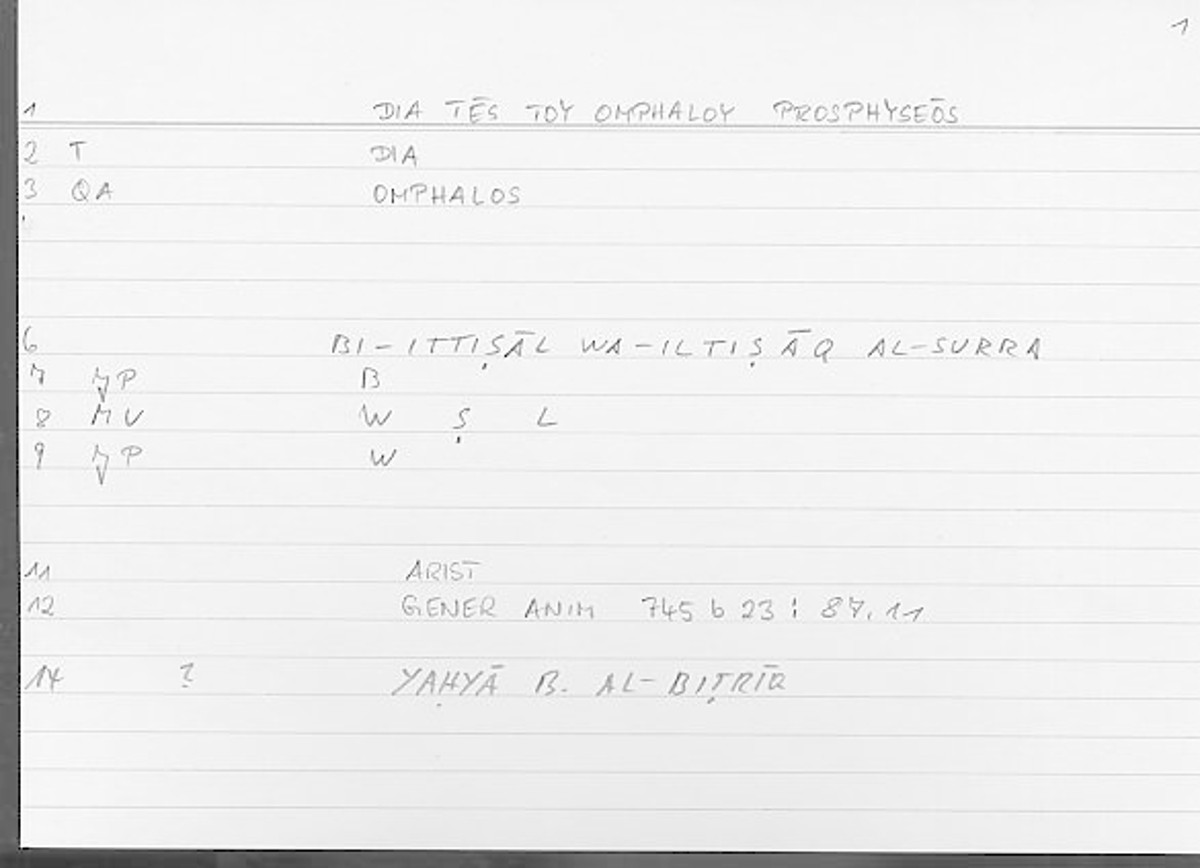 1
1 DIA TĒS TOY OMPHALOY PROSPHYSEŌS
2 T DIA
3 QA OMPHALOS
6 BI-ITTIṢĀL WA-ILTIṢĀQ AL-SURRA
7 P B
8 MU W Ṣ L
9 P W
11 ARIST
12 GENER ANIM 745 b 23 : 87.11
14 ? YAḤYĀ B. AL-BIṬRĪQ